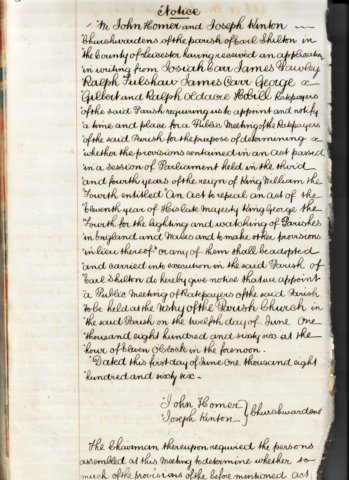 Notice
"We John Homer and Joseph Kinton
"Churchwardens of the parish of Earl Shilton in
"the County of Leicester having received an application
"in writing from Josiah Carr James Pawley
"Ralph Fulshaw James Carr George
"Gilbert and Ralph Oldacre Hobill Ratepayers
"of the said Parish requiring us to appoint and notify
"a time and place for a Public Meeting of the Ratepayers
"of the said Parish for the purpose of determining
"whether the provisions contained in an Act passed
"in a session of Parliament held in the third
"and fourth years of the reign of King William the
"Fourth entitled "An Act to repeal an Act of the
"Eleventh year of His late Majesty King George the
"Fourth for the lighting and watching of Parishes
"in England and Wales and to make other provisions
"in lieu thereof" or any of them shall be adopted
"and carried into execution in the said Parish of
"Earl Shilton do hereby give notice that we appoint
"a Public Meeting of Ratepayers of the said Parish
"to be held at the Vestry of the Parish Church in
"the said Parish on the twelfth day of June One
"thousand eight hundred and sixty six at the
"hour of Eleven O'Clock in the forenoon.
"Dated this first day of June One thousand eight
"hundred and sixty six -
"John Homer
"Joseph Kinton } Churchwardens
The Chairman thereupon required the persons
assembled at this Meeting to determine whether so
much of the provisions of the before mentioned Act